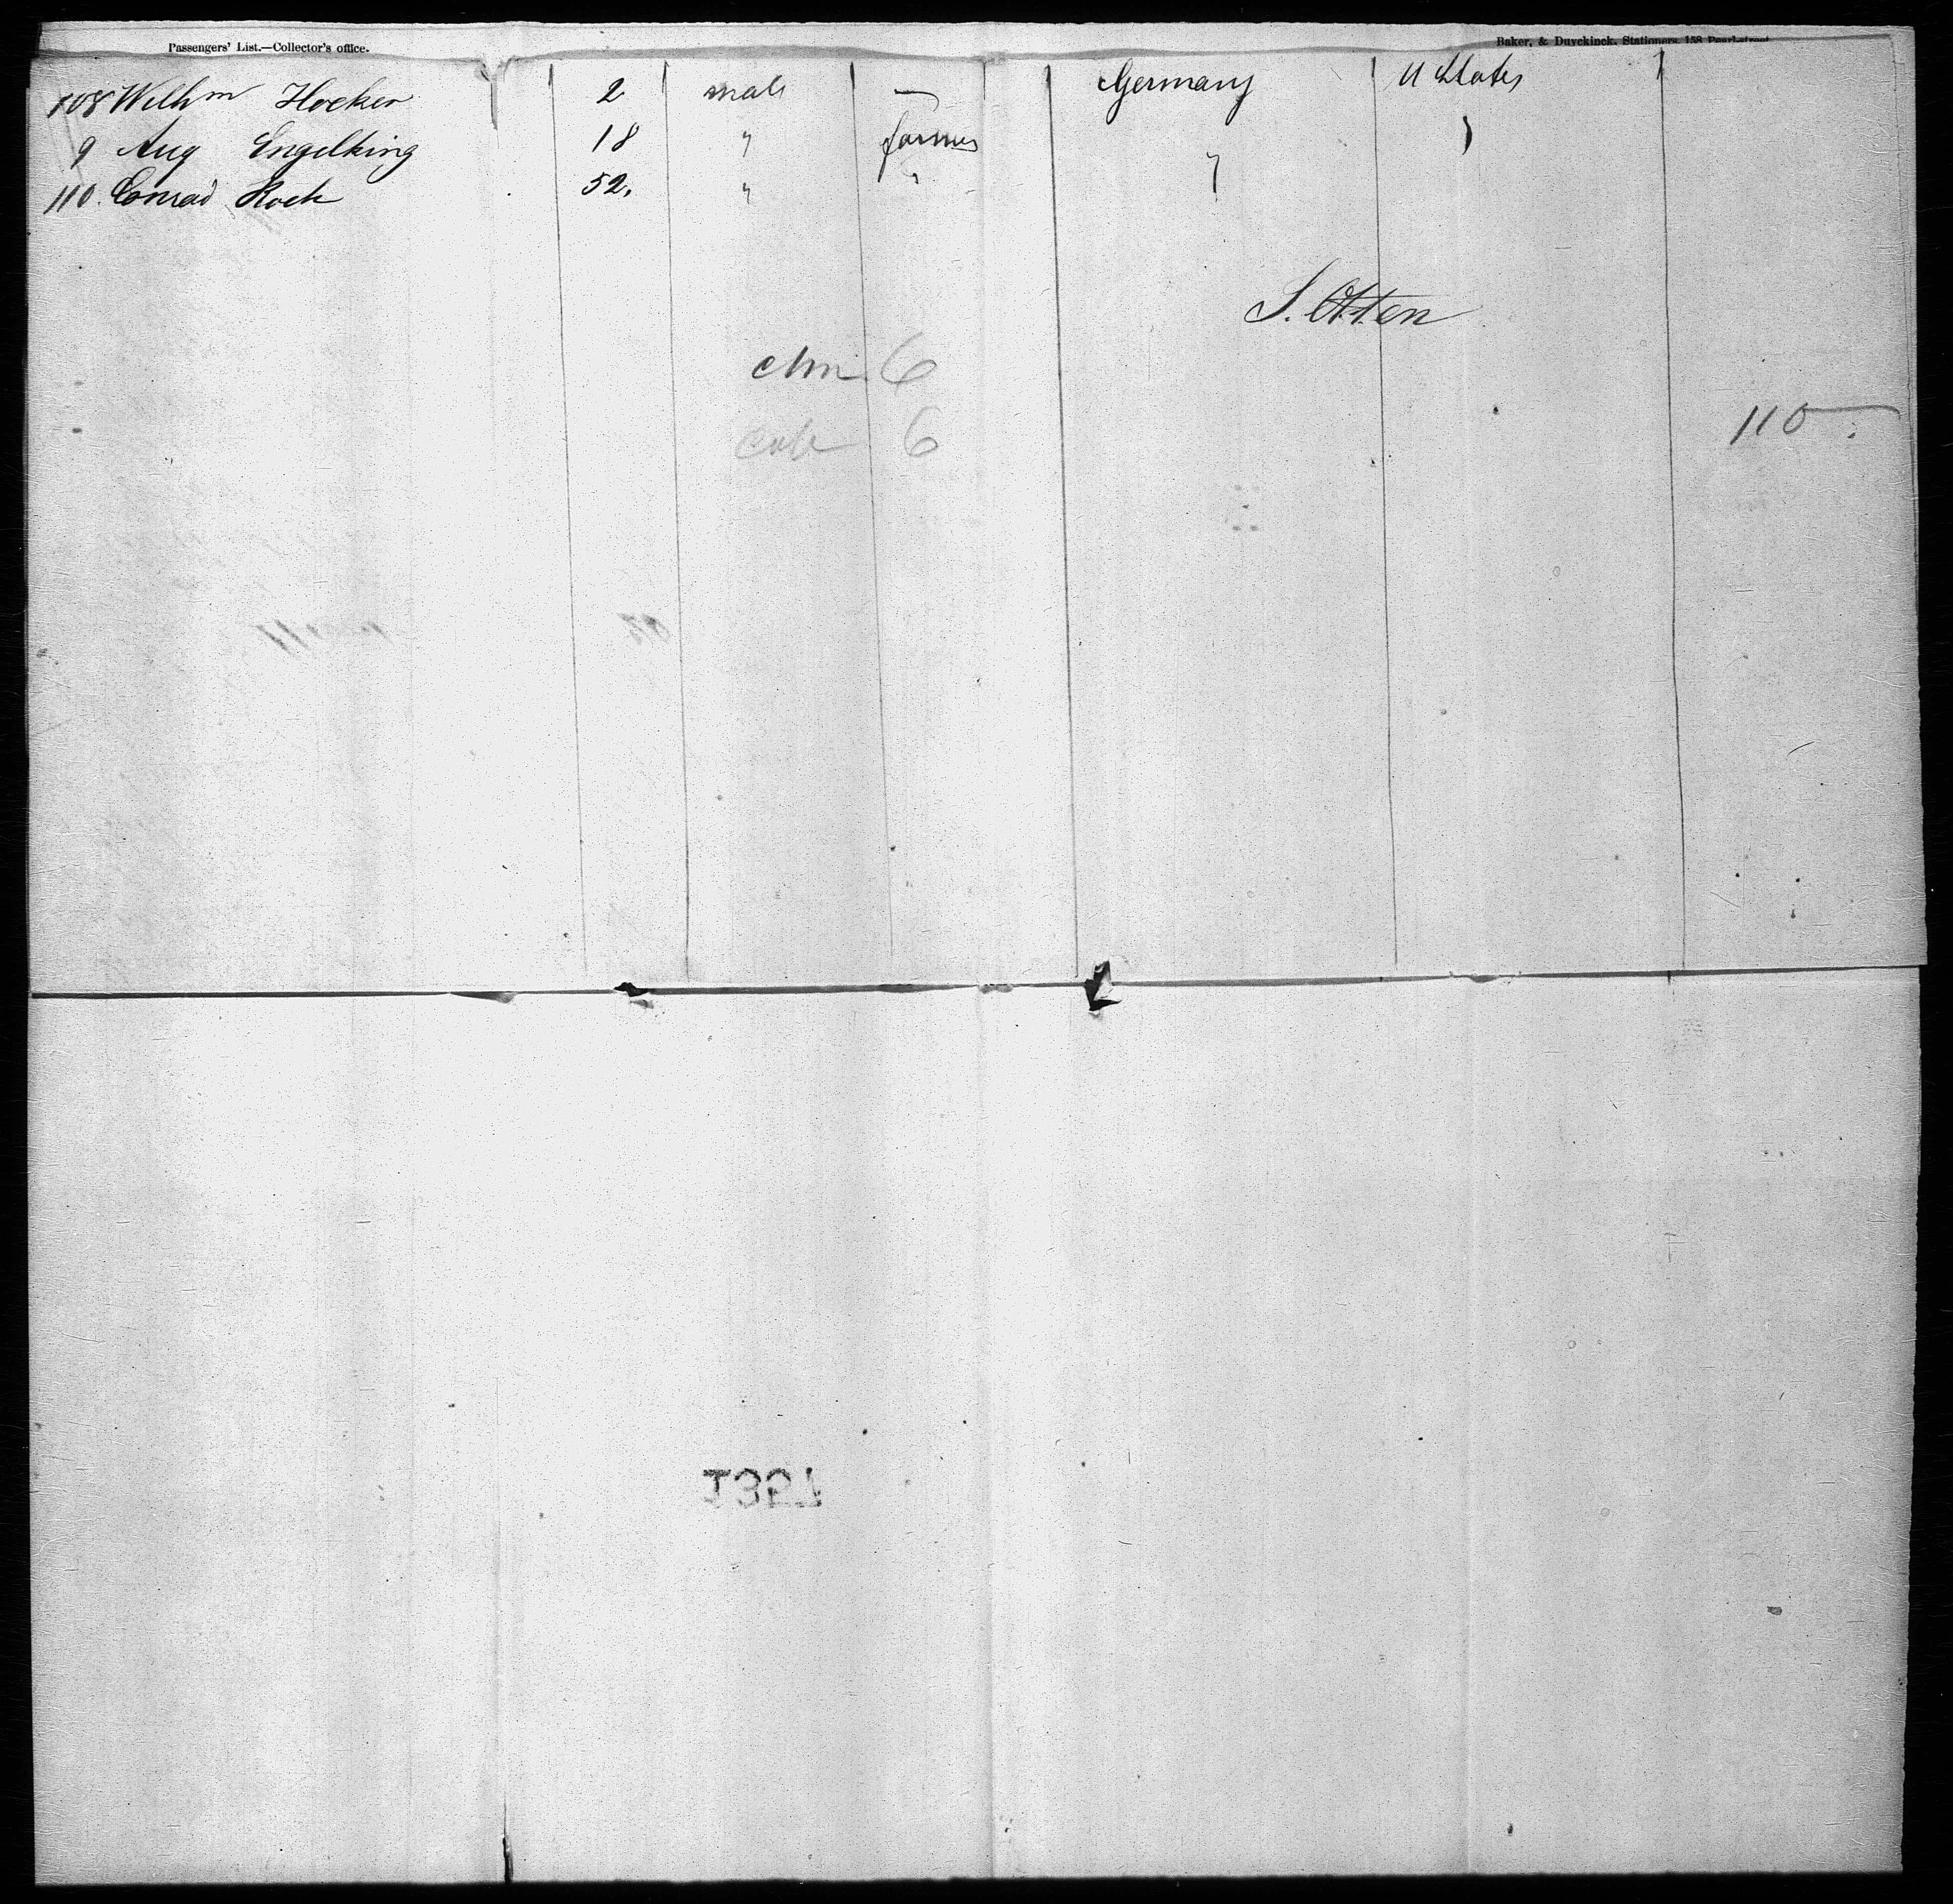 Passengers' List.—Collector's office. Baker, & Duyckinck, Stationers, 158 Pearl-street
108 Wilhm Hocker 2 male — Germany U States
9 Aug Engelking 18 " farmer " "
110. Conrad Rock 52. " " "
S. Otten
6
6
110